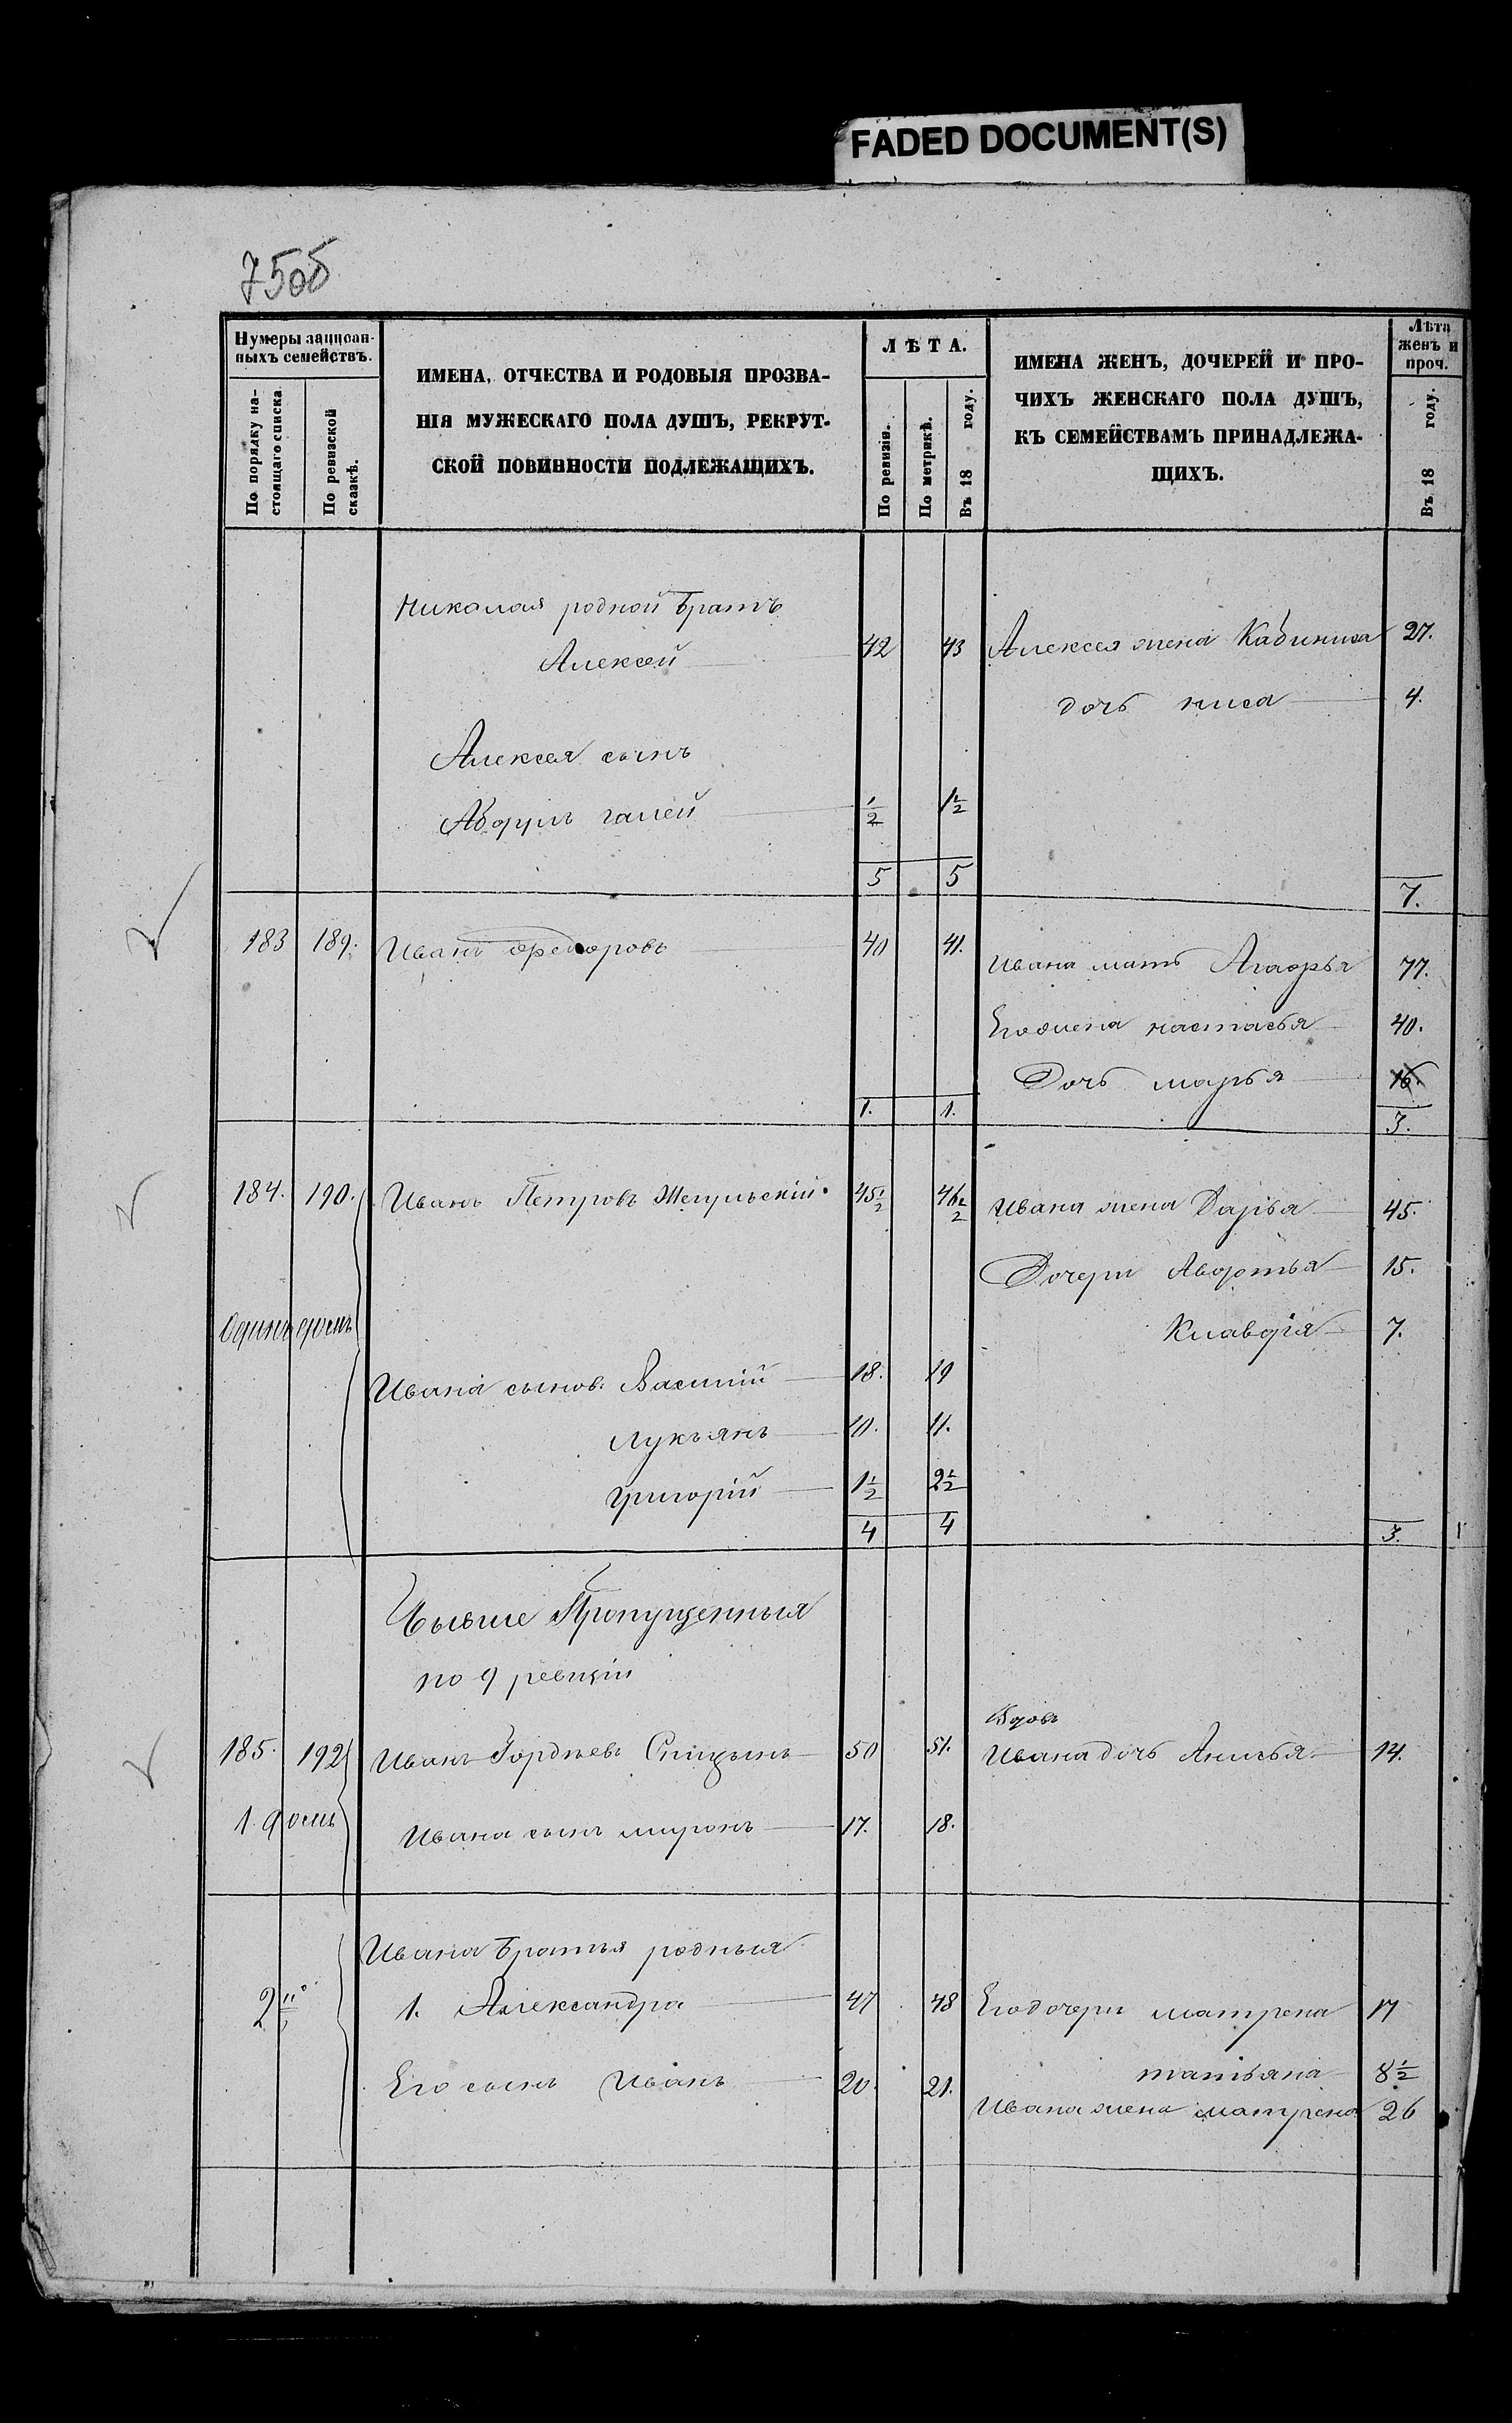 FADED DOCUMENT(S)
75об
Нумеры записан-
ныхъ семействъ.
По порядку на-
стоящаго списка
По ревизской
сказкѣ.
ИМЕНА, ОТЧЕСТВА И РОДОВЫЯ ПРОЗВА-
НІЯ МУЖЕСКАГО ПОЛА ДУШЪ, РЕКРУТ-
СКОЙ ПОВИННОСТИ ПОДЛЕЖАЩИХЪ.
ЛѢТА.
По ревизіи.
По метрикѣ.
Въ 18 году.
ИМЕНА ЖЕНЪ, ДОЧЕРЕЙ И ПРО-
ЧИХЪ ЖЕНСКАГО ПОЛА ДУШЪ,
КЪ СЕМЕЙСТВАМЪ ПРИНАДЛЕЖА-
ЩИХЪ.
Лѣта
женъ и
проч.
Въ 18 году.
Николая родной братъ
Алексей 42 43 Алексея жена 27.
дочь 4.
Алексея сынъ
Абдулъ галей 1/2 1 1/2
5 5 7.
183 189. Иванъ Федоровъ 40 41.
Ивана мать Агафья 77.
Его жена настасья 40.
Дочь марья 16.
1. 1. 3.
184. 190. Иванъ Петровъ Жегульскій 45 1/2 46 1/2 Ивана жена Дарья 45.
Дочери Авдотья 15.
Одинъ домъ Клавдія 7.
Ивана сынов. Василій 18. 19
Лукъянъ 10. 11.
григорій 1 1/2 2 1/2
4 4 3.
Бывшіе Пропущенныя
по 9 ревизіи
Вдовъ
185. 192 Иванъ Гордѣевъ Спицынъ 50 51. Ивана дочь Анисья 14.
1. домъ Ивана сынъ миронъ 17. 18.
Ивана братья родныя
2 1. Александра 47 48 Его дочери матрена 17
Его сынъ Иванъ 20. 21. татьяна 8 1/2
Ивана жена матрена 26